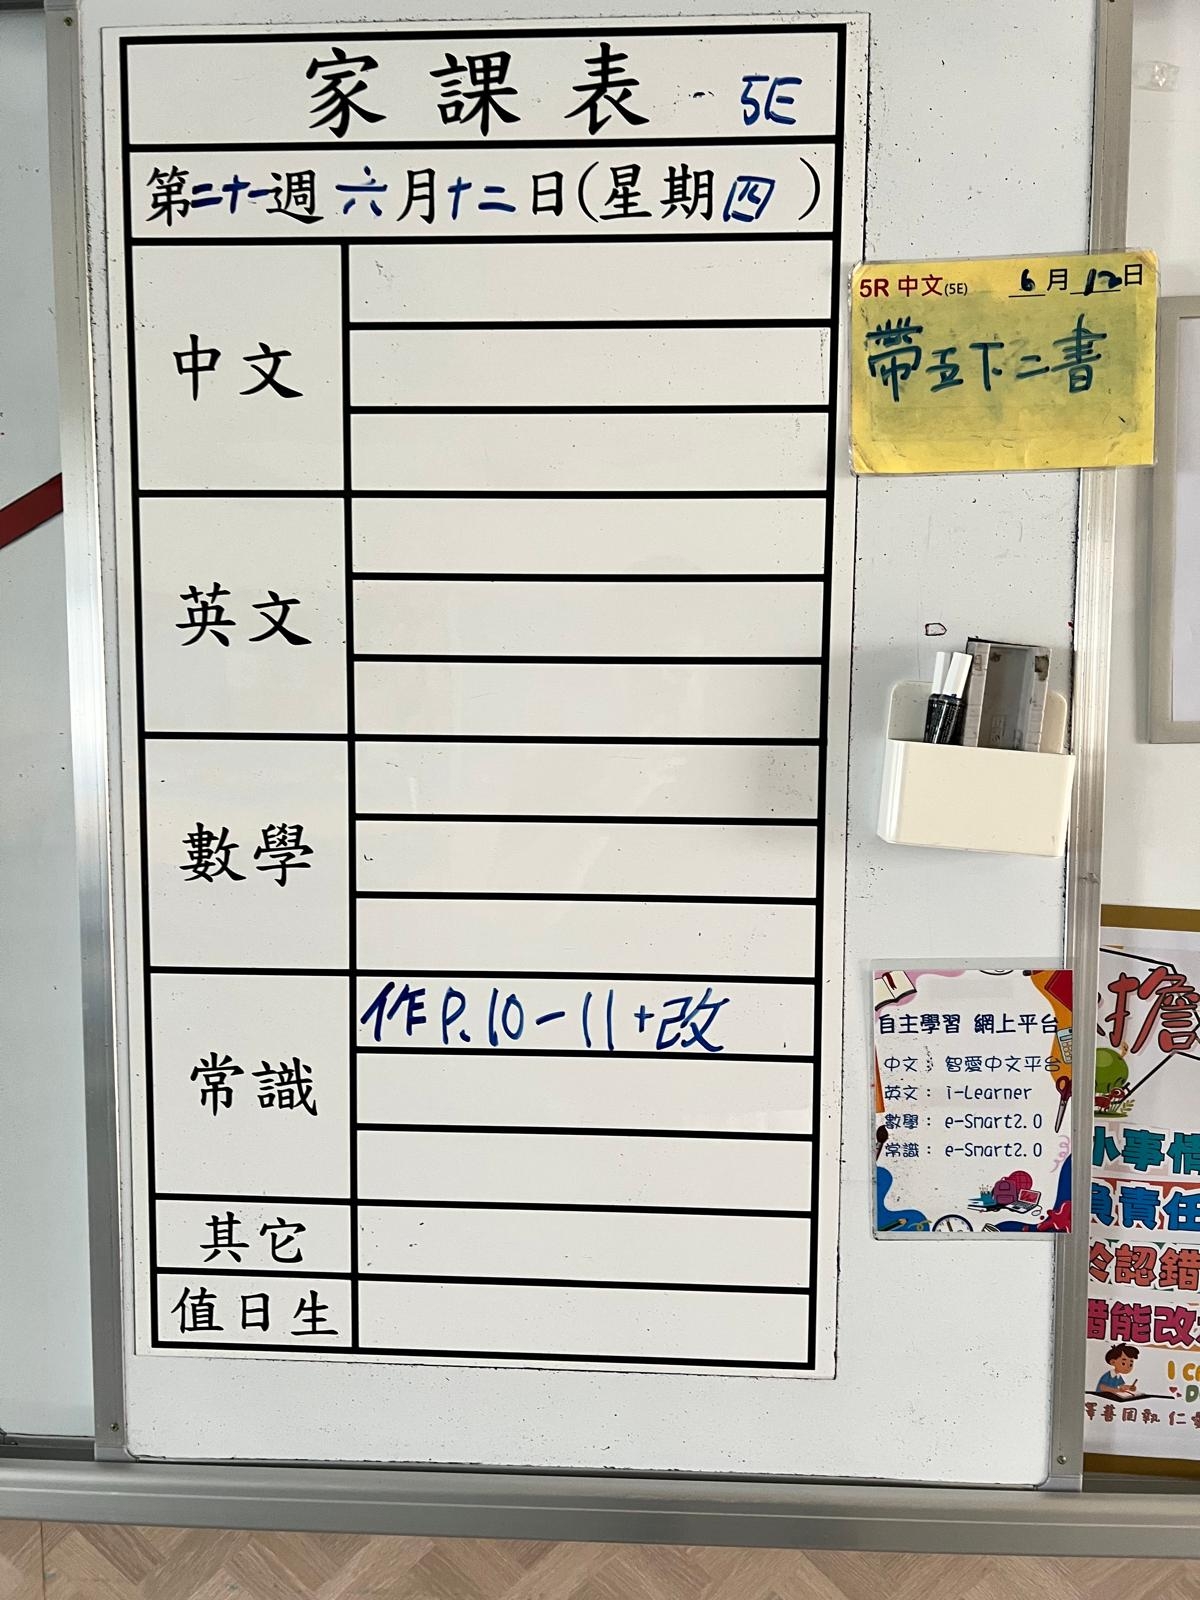 家課表 - 5E
第二十一週 六月十二日(星期四)
中文
英文
數學
常識
作P.10-11+改
其它
值日生
5R 中文(5E) 6月12日
帶五下二書
自主學習 網上平台
中文： 智愛中文平台
英文： i-Learner
數學： e-Smart2.0
常識： e-Smart2.0
擔
小事情
負責任
於認錯
錯能改
擇善固執 仁